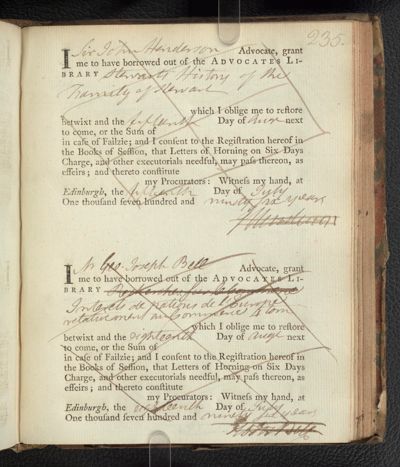 235.
I Sir John Henderson Advocate, grant
me to have borrowed out of the ADVOCATES LI-
BRARY Stewarts History of the
Family of Stewart
which I oblige me to reſtore
betwixt and the Day of next
to come, or the Sum of
in caſe of Failzie; and I conſent to the Regiſtration hereof in
the Books of Seſſion, that Letters of Horning on Six Days
Charge, and other executorials needful, may paſs thereon, as
effeirs; and thereto conſtitute
my Procurators: Witneſs my hand, at
Edinburgh, the Day of July
One thouſand ſeven hundred and ninety six years
I Mr Geo. Joseph Bell Advocate, grant
me to have borrowed out of the ADVOCATES LI-
BRARY
Interets de nations de l'Europe
relativement au Commerce
which I oblige me to reſtore
betwixt and the eighteenth Day of Augt next
to come, or the Sum of
in caſe of Failzie; and I conſent to the Regiſtration hereof in
the Books of Seſſion, that Letters of Horning on Six Days
Charge, and other executorials needful, may paſs thereon, as
effeirs; and thereto conſtitute
my Procurators: Witneſs my hand, at
Edinburgh, the Day of July
One thouſand ſeven hundred and ninety six years